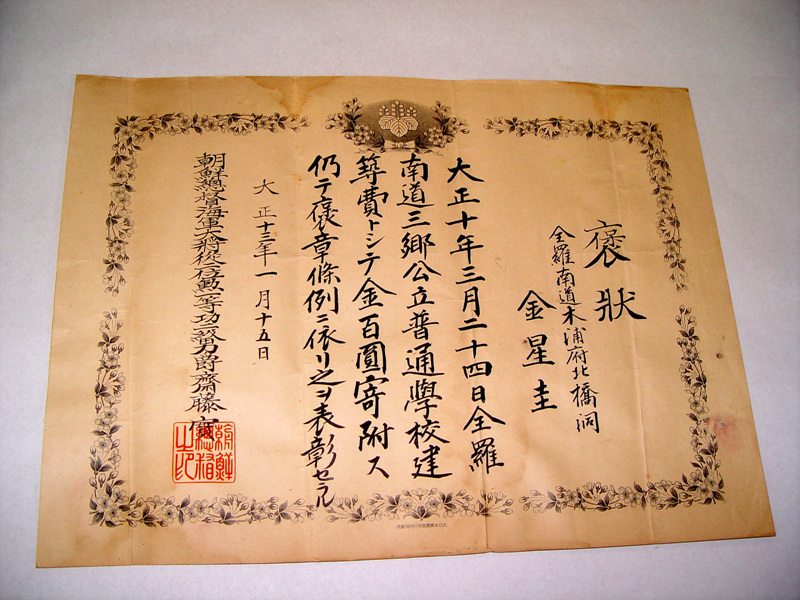 褒狀
全羅南道木浦府北橋洞
金星圭
大正十年三月二十四日全羅
南道三鄉公立普通學校建
築費トシテ金百圓寄附ス
仍テ褒章條例ニ依リ之ヲ表彰セラル
大正十三年一月十五日
朝鮮總督海軍大將從二位勳一等功二級男爵齋藤實
朝鮮
總督
之印